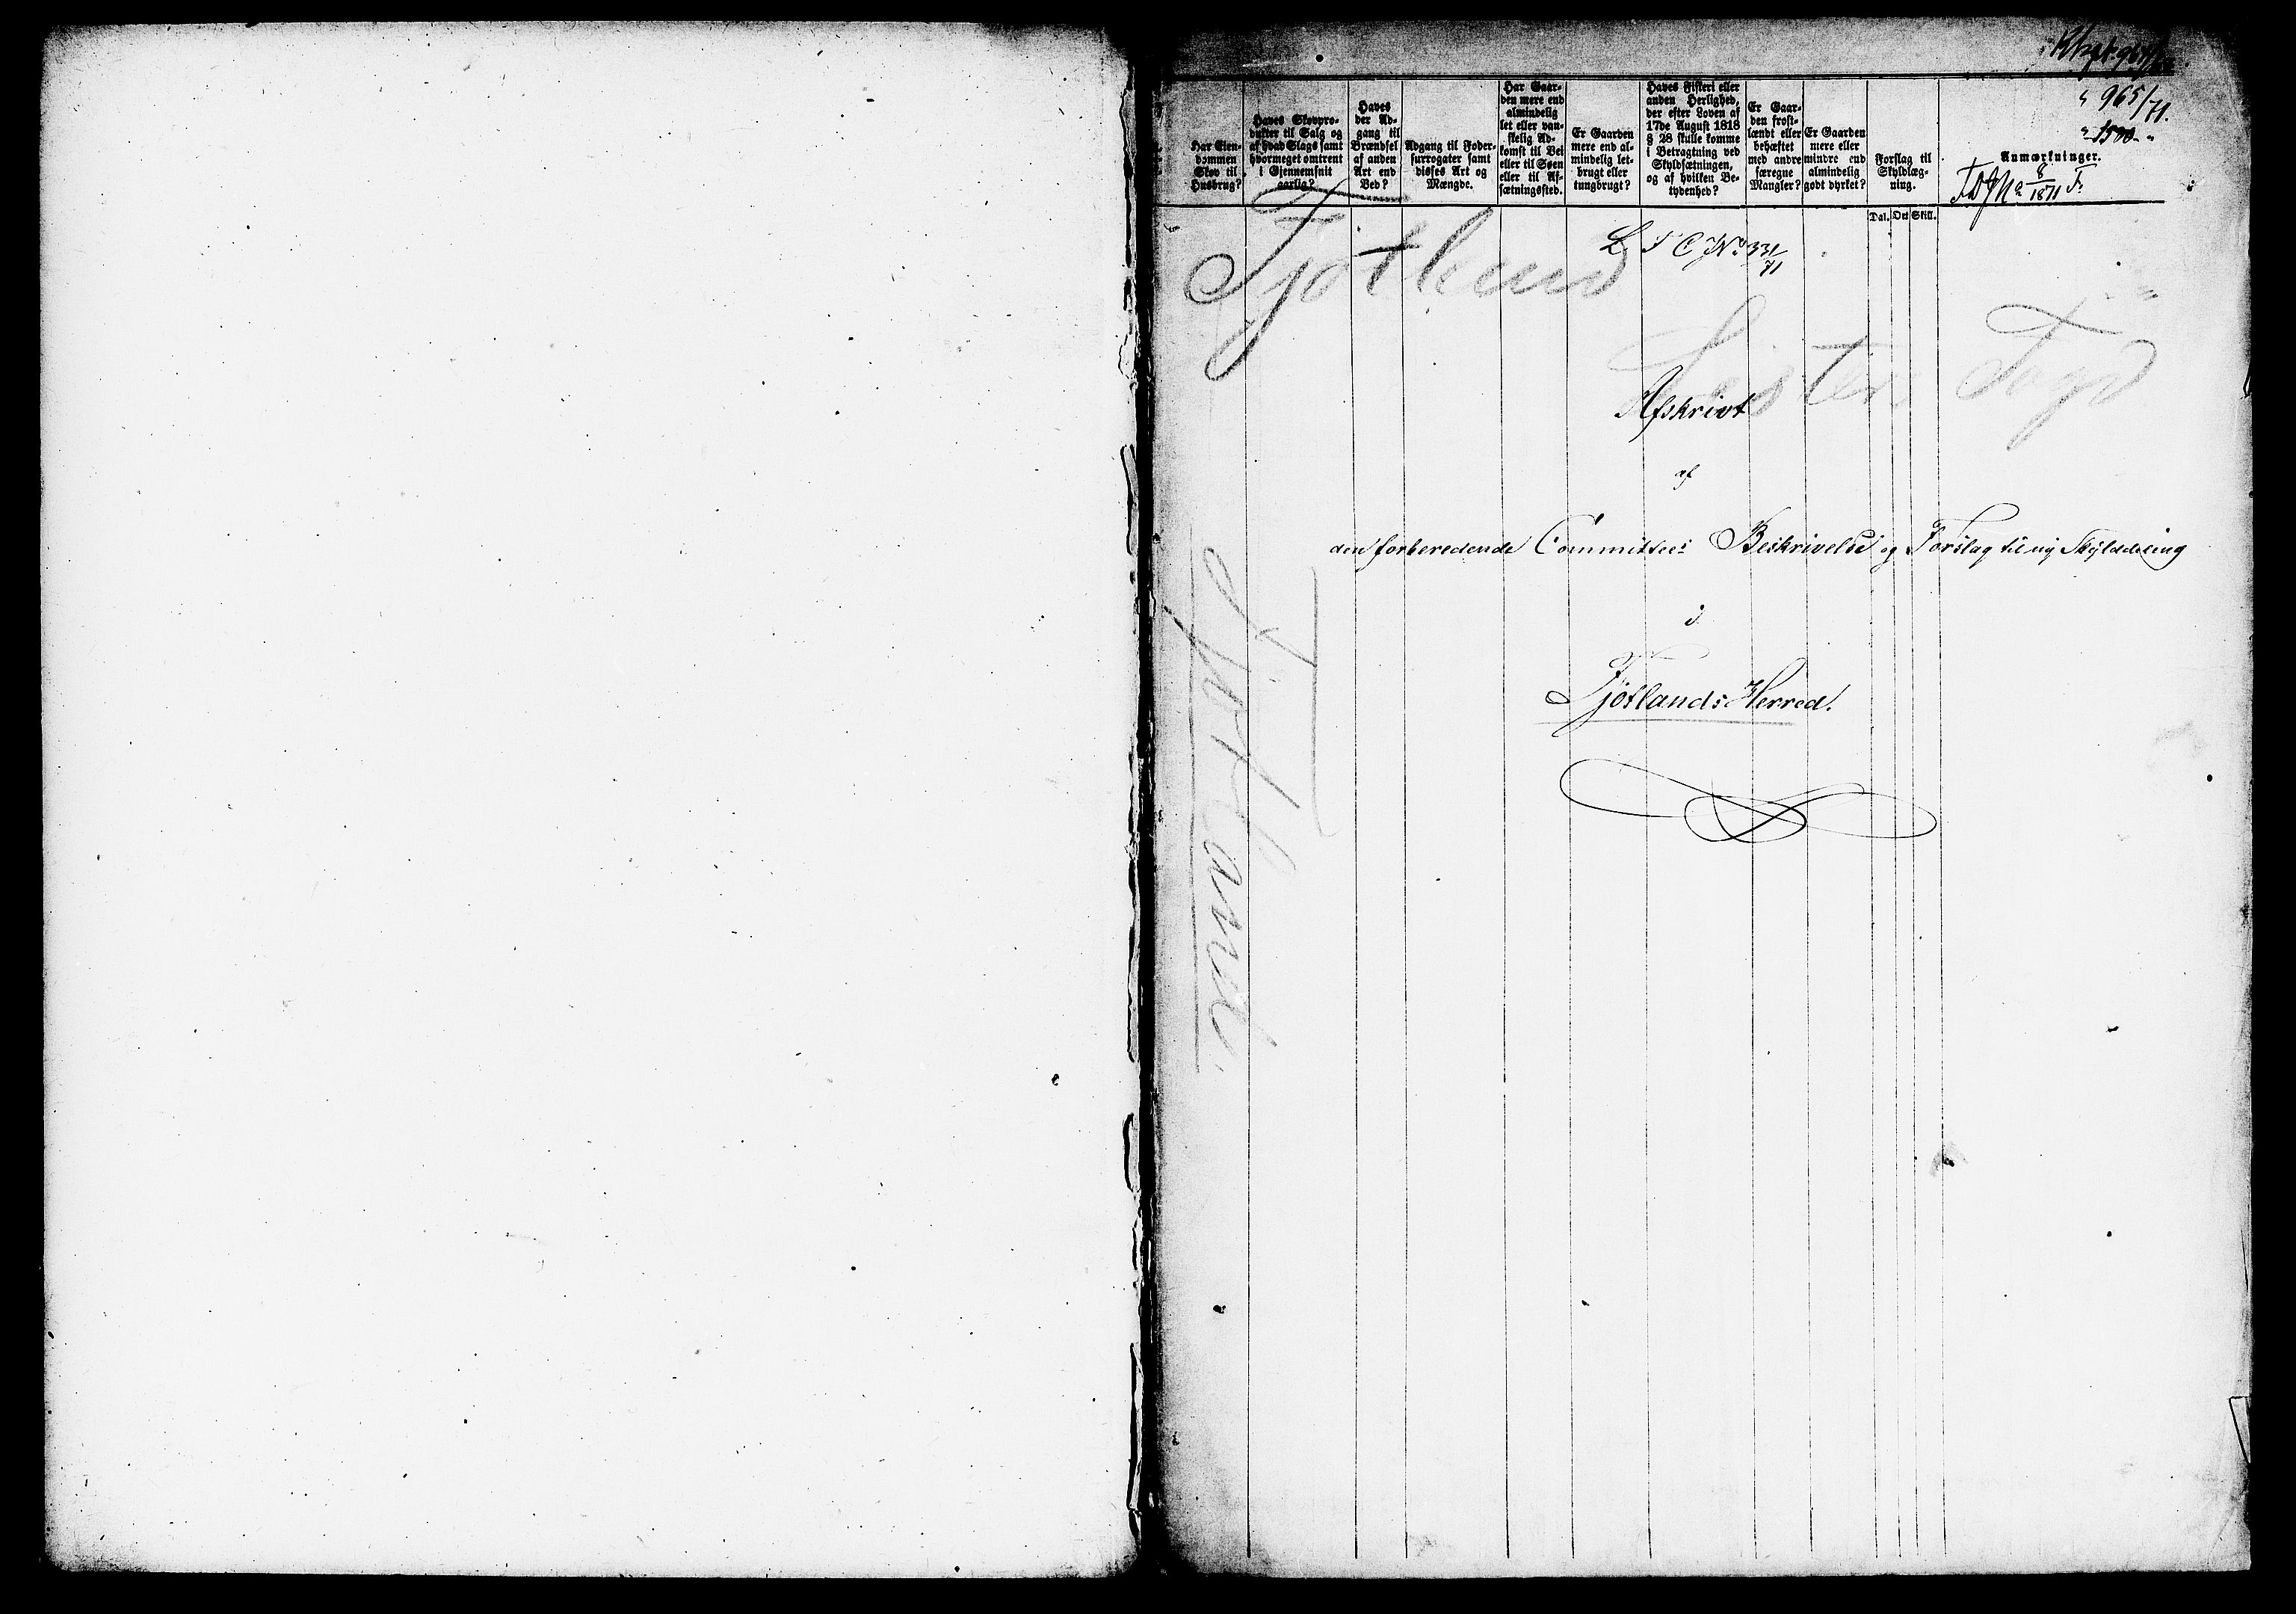 965/71.
" 1500 - "
Har Eien-
dommen
Skov til
Husbrug?
Haves Skovpro-
dukter til Salg og
af hvad Slags samt
hvormeget omtrent
i Gjennemsnit
aarlig?
Haves
der Ad-
gang til
Brændsel
af anden
Art end
Ved?
Adgang til Foder-
surrogater samt
disses Art og
Mængde.
Har Gaar-
den mere end
almindelig
let eller van-
skelig Ad-
komst til Vei
eller til Søen
eller til Af-
sætningssted.
Er Gaarden
mere end al-
mindelig let-
brugt eller
tungbrugt?
Haves Fiskeri eller
anden Herlighed,
der efter Loven af
17de August 1818
§ 28 skulle komme
i Betragtning ved
Skyldsætningen,
og af hvilken Be-
tydenhed?
Er Gaar-
den frost-
lændt eller
behæftet
med andre
særegne
Mangler?
Er Gaarden
mere eller
mindre end
almindelig
godt dyrket?
Forslag til
Skyldlæg-
ning.
Anmærkninger.
8/1871
Dal. Ort Skill.
Fjotland
L F C JNo 331/71
Lister Fogd
Afskrivt
af
den forberedende Committees Beskrivelse og Forslag til ny Skylddeling
i
Fjotlands Herred.
Fjotland